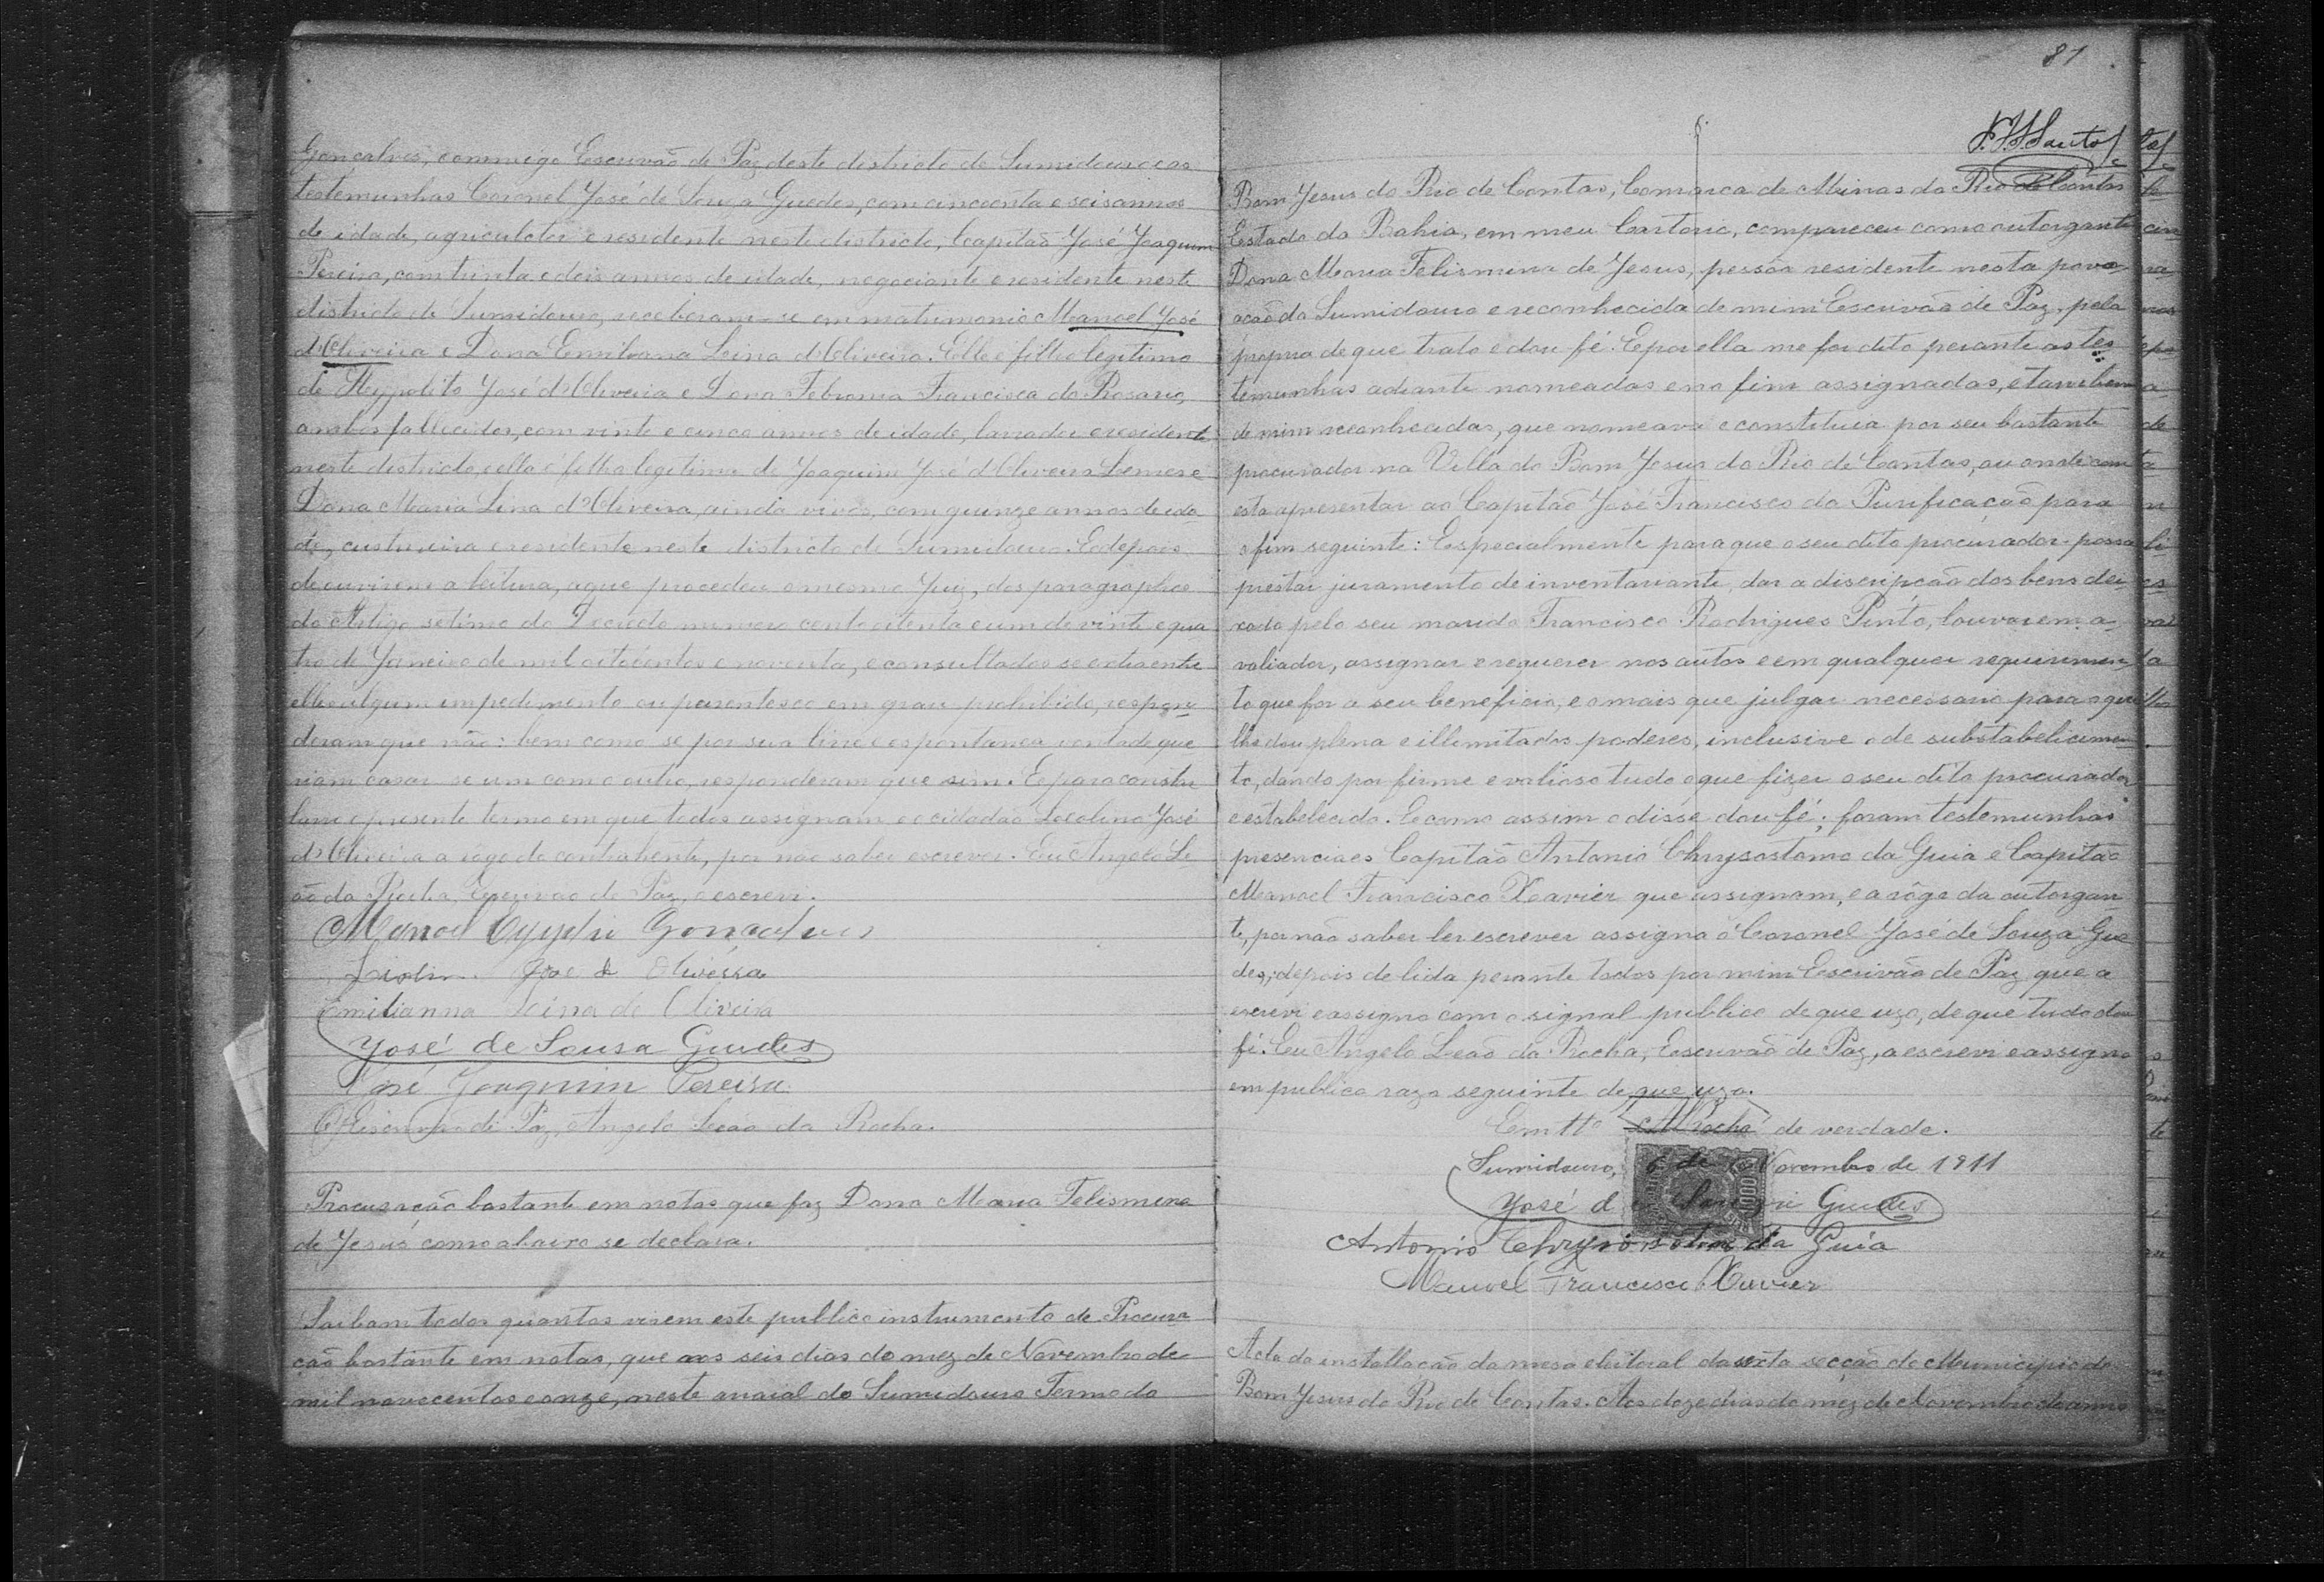 Gonçalves, commigo Escrivão de Paz deste districto de Sumidouro e as
testemunhas Coronel José de Souza Guedes, com cincoenta e seis annos
de idade, agricultor e residente neste districto, Capitão José Joaquim
Pereira, com trinta e dois annos de idade, negociante e residente neste
districto de Sumidouro, receberam-se em matrimonio Manoel José
d'Oliveira e Dona Emiliana Lina d'Oliveira. Elle é filho legitimo
de Hyppolito José d'Oliveira e Dona Febronia Francisca do Rosario,
ambos fallecidos, com vinte e cinco annos de idade, lavrador e residente
neste districto, e ella é filha legitima de Joaquim José d'Oliveira Lemos e
Dona Maria Lina d'Oliveira, ainda vivos, com quinze annos de ida
de, custureira e residente neste districto de Sumidouro. E depois
de ouvirem a leitura, a que procedeu o mesmo Juiz, dos paragraphos
do Artigo setimo do Decreto numero cento oitenta e um de vinte e qua
tro de Janeiro de mil oitocentos e noventa, e consultados se entre
elles algum impedimento ou parentesco em grau prohibido, respon
deram que não: bem como se por sua livre e espontanea vontade que
riam casar-se um com o outro, responderam que sim. E para constar
lavrei o presente termo em que todos assignam, e o cidadão José
d'Oliveira a rôgo do contrahente, por não saber escrever. Eu Angelo Le
ão da Rocha, Escrivão de Paz, o escrevi.
Manoel Gonçalves
José de Oliveira
Emilianna Lina de Oliveira
José de Sousa Guedes
José Joaquim Pereira
O Escrivão de Paz, Angelo Leão da Rocha.
Procuração bastante em notas que faz Dona Maria Felismina
de Jesus como abaixo se declara.
Saibam todos quantos virem este publico instrumento de Procura
ção bastante em notas, que aos seis dias do mez de Novembro de
mil novecentos e onze, neste arraial do Sumidouro Termo do
81
Santos
Bom Jesus do Rio de Contas, Comarca de Minas do Rio de Contas
Estado da Bahia, em meu Cartorio, compareceu como outorgante
Dona Maria Felismina de Jesus, pessôa residente nesta povo-
ação do Sumidouro e reconhecida de mim Escrivão de Paz, pela
propria de que trato e dou fé. E por ella me foi dito perante as tes
temunhas adiante nomeadas e no fim assignadas, e tambem
de mim reconhecidas, que nomeava e constituia por seu bastante
procurador na Villa do Bom Jesus do Rio de Contas, ou onde com
esta apresentar ao Capitão José Francisco da Purificação para
o fim seguinte: Especialmente para que o seu dito procurador possa
prestar juramento de inventariante, dar a discripção dos bens dei-
xado pelo seu marido Francisco Rodrigues Pinto, louvar em a-
valiador, assignar e requerer nos autos e em qualquer requerimen-
to que for a seu beneficio, e o mais que julgar necessario para o que
lhe dou plena e illimitados poderes, inclusive o de substabelicimen
to, dando por firme e valioso tudo o que fizer o seu dito procurador
e estabelecido. E como assim o disse dou fé; foram testemunhas
presenciaes Capitão Antonio Chrysostomo da Guia e Capitão
Manoel Francisco Xavier que assignam, e a rôgo da outorgan
te, por não saber ler escrever assigna o Coronel José de Souza Gue
des; depois de lida perante todos por mim Escrivão de Paz que a
escrevi e assigno com o signal publico de que uzo, de que tudo dou
fé. Eu Angelo Leão da Rocha, Escrivão de Paz, a escrevi e assigno
em publico razo seguinte de que uzo.
Em tto ALRocha de verdade.
Sumidouro, 6 de Novembro de 1911
José de Guedes
Antonio Chrysostomo da Guia
Manoel Francisco Xavier
Acta da installação da mesa eleitoral da sexta secção do Municipio do
Bom Jesus do Rio de Contas. Aos doze dias do mez de Novembro do anno